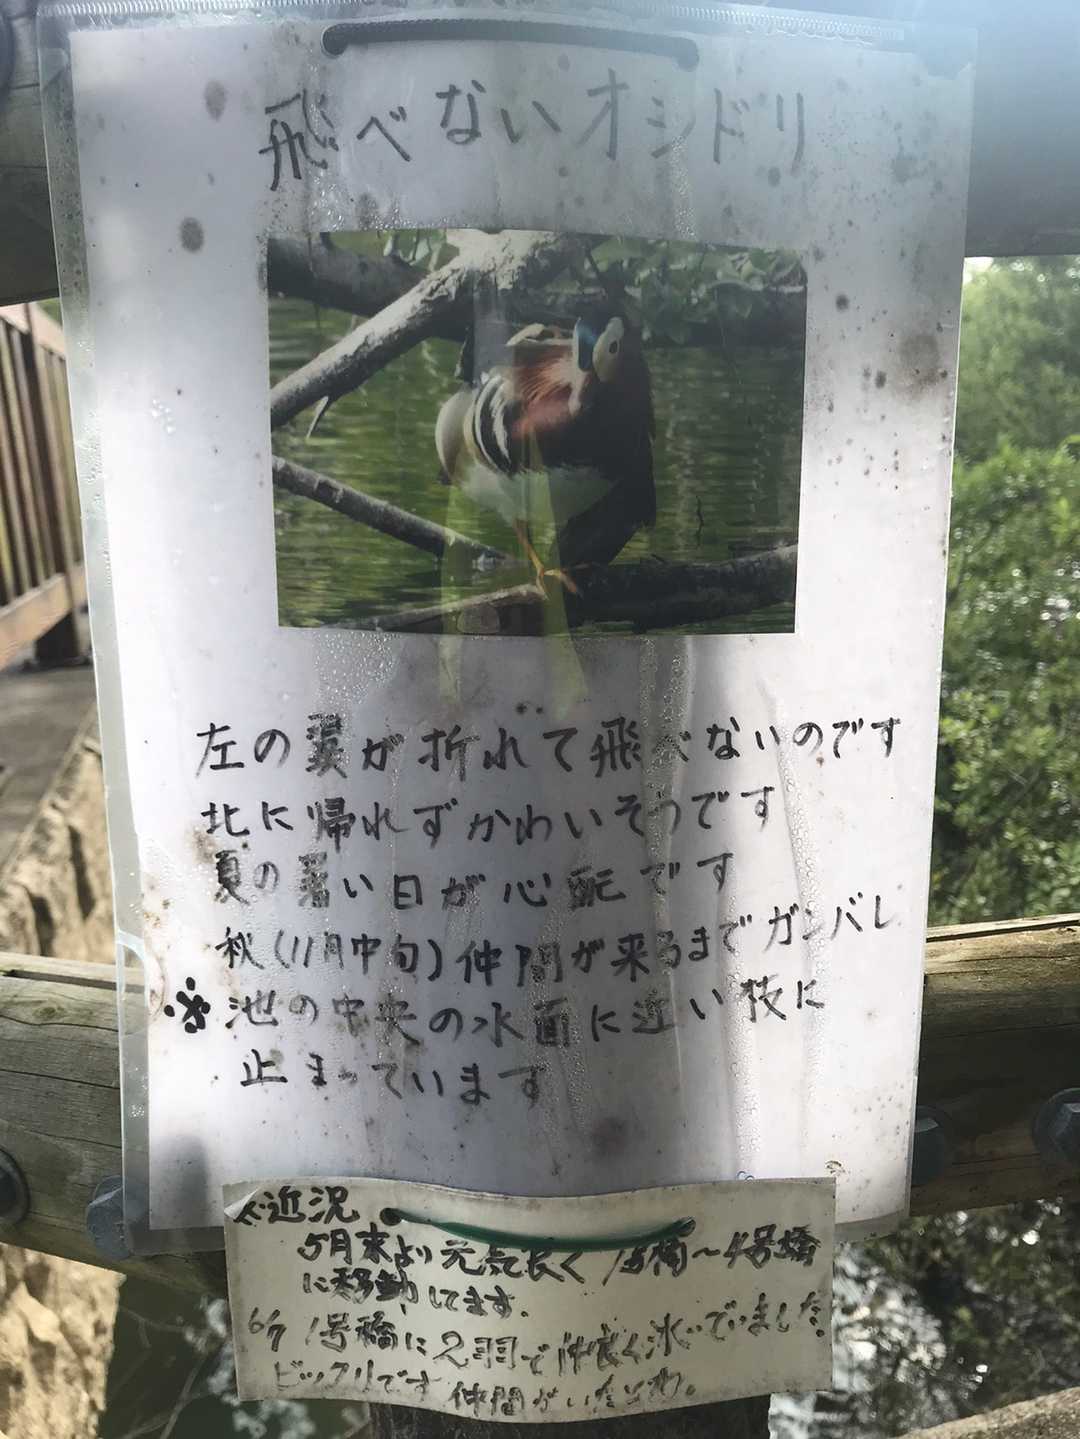 飛べないオシドリ
左の翼が折れて飛べないのです
北に帰れずかわいそうです
夏の暑い日が心配です
秋(11月中旬)仲間が来るまでガンバレ
※池の中央の水面に近い枝に
止まっています
近況
5月末より元気良く1号橋〜4号橋
に移動してます。
6/7 1号橋に2羽で仲良く泳いでいました
ビックリです 仲間がいたとは。